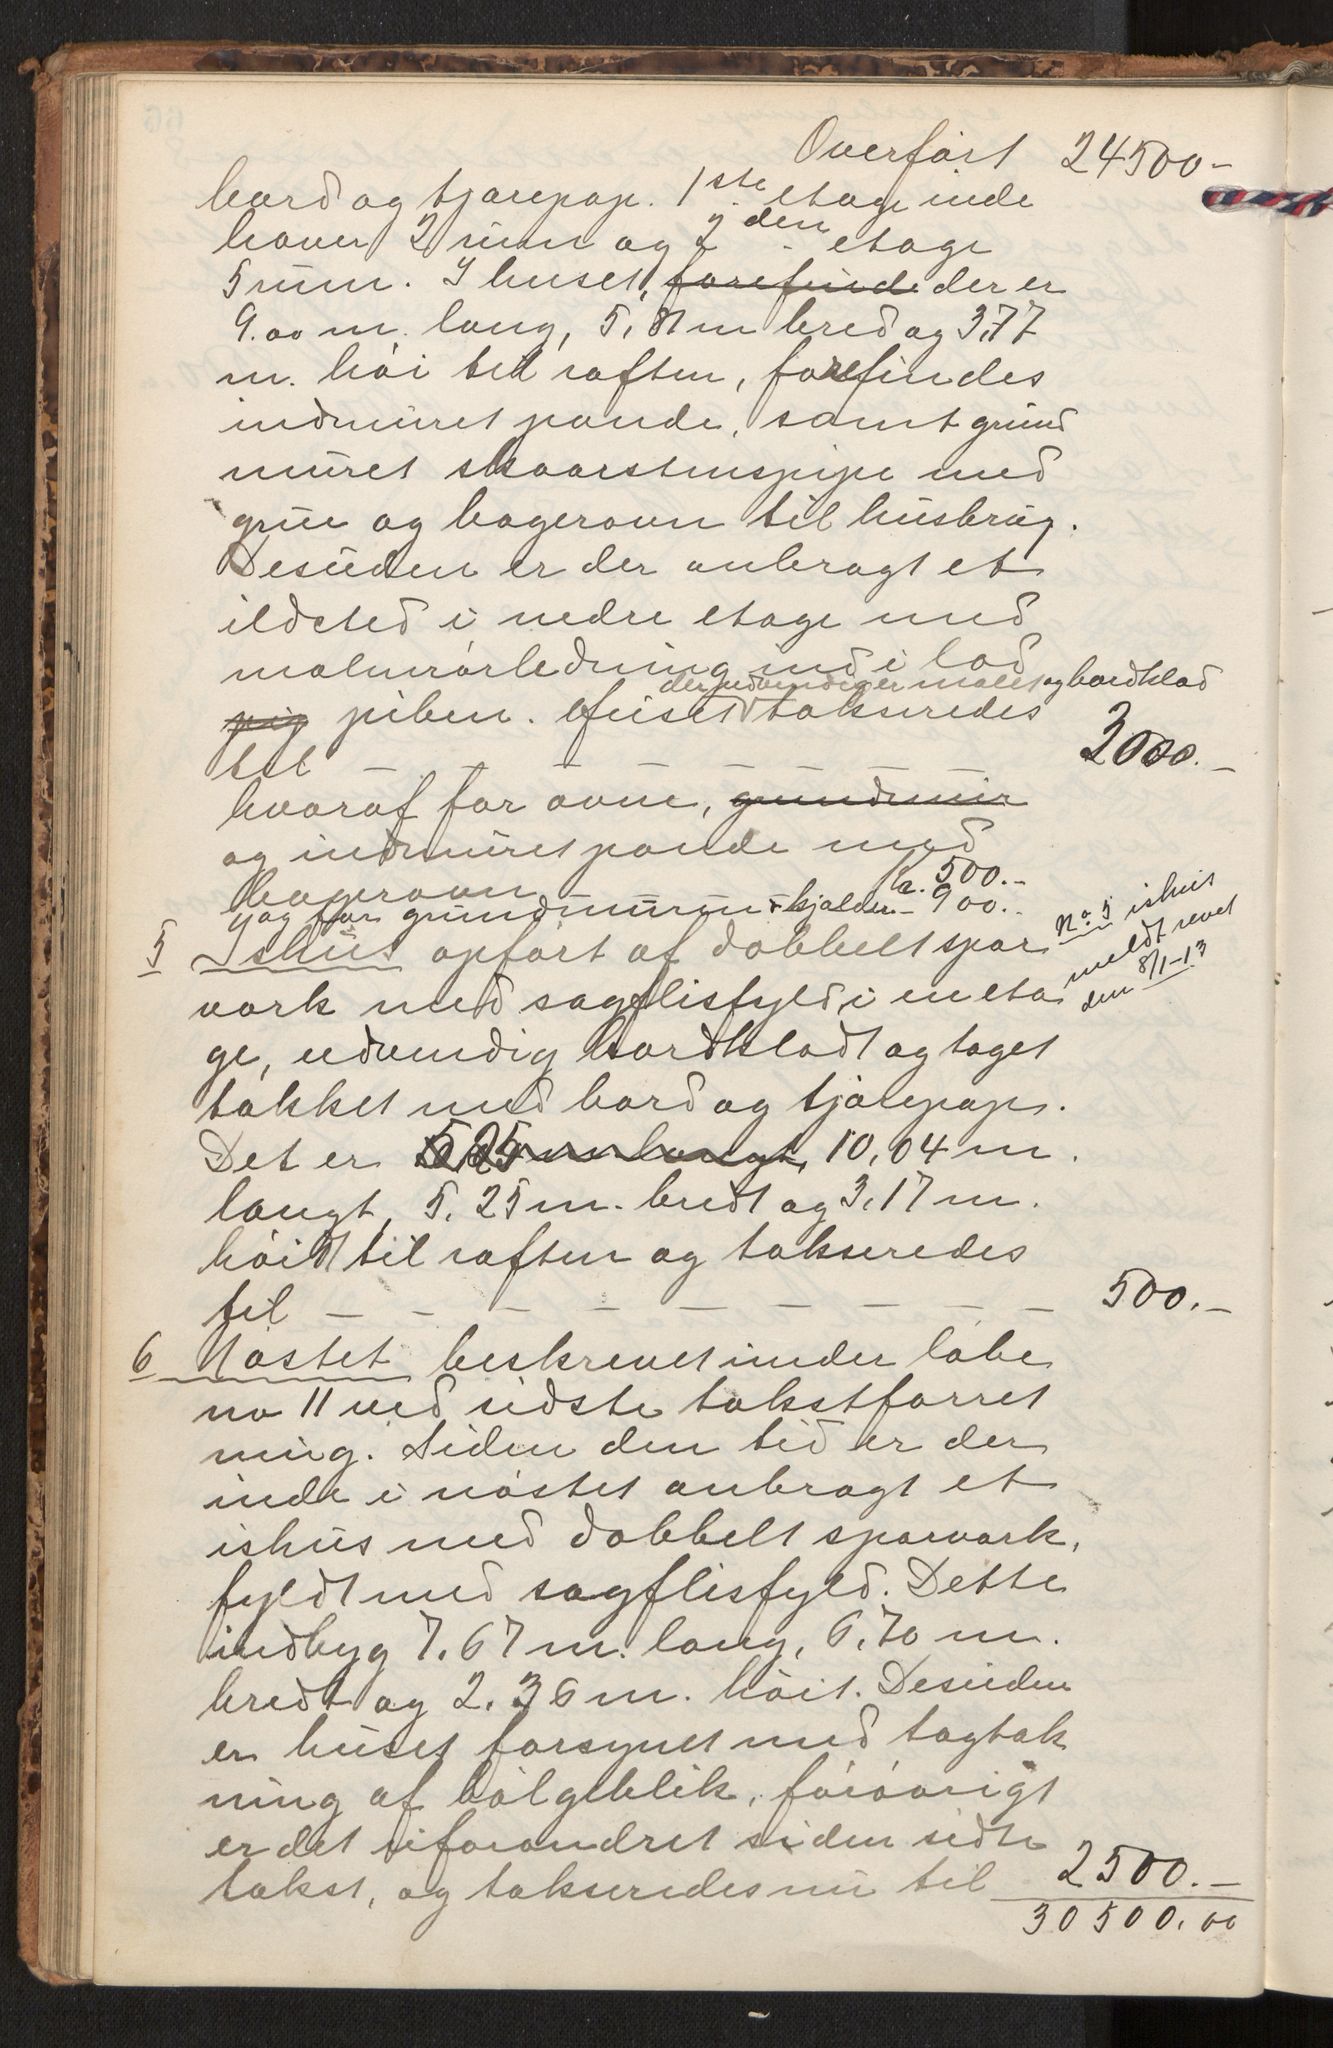 Overført 24500-
bord og tjærepap. 1ste etage inde
haver 2 rum og 2den etage
5 rum. I huset, forefinde der er
9.00 m. lang, 5,81 m bred og 3,77
m. høi til raften, forefindes
indmuret pande, samt grund
muret skoorstenspipe med
grue og bagerovn til husbrug.
Desuden er der anbragt et
ildsted i nedre etage med
malmrørledning ind i lod
der udvendig er malet og bordklæd
pig piben. Huset takseredes
til — — — — — — — — 3000.-
hvoraf for ovne, grundmur
og indmuret pande med
bagerovn kr. 500.-
og for grundmuren i kjelder - 900.-
No. 5 ishus
meldt revet
den 8/1-13
5 Ishus opført af dobbelt spær
værk med sagflisfyld i en eta
ge, udvendig bordklædt og taget
tækket med bord og tjærepap.
Det er 5,25 m langt, 10,04 m.
langt, 5,25 m. bredt og 3,17 m.
høidt til raften og takseredes
til — — — — — — — — 500.-
6 Nøstet beskrevet under løbe
no 11 ved sidste takstforret
ning. Siden den tid er der
inde i nøstet anbragt et
ishus med dobbelt spærværk,
fyldt med sagflisfyld. Dette
indbyg 7.67 m. lang, 6,70 m.
bredt og 2.36 m. høit. Desuden
er huset forsynet med tagtæk
ning af bølgeblik, forøvrigt
er det uforandret siden sidste
takst, og takseredes nu til 2500.-
30500.00